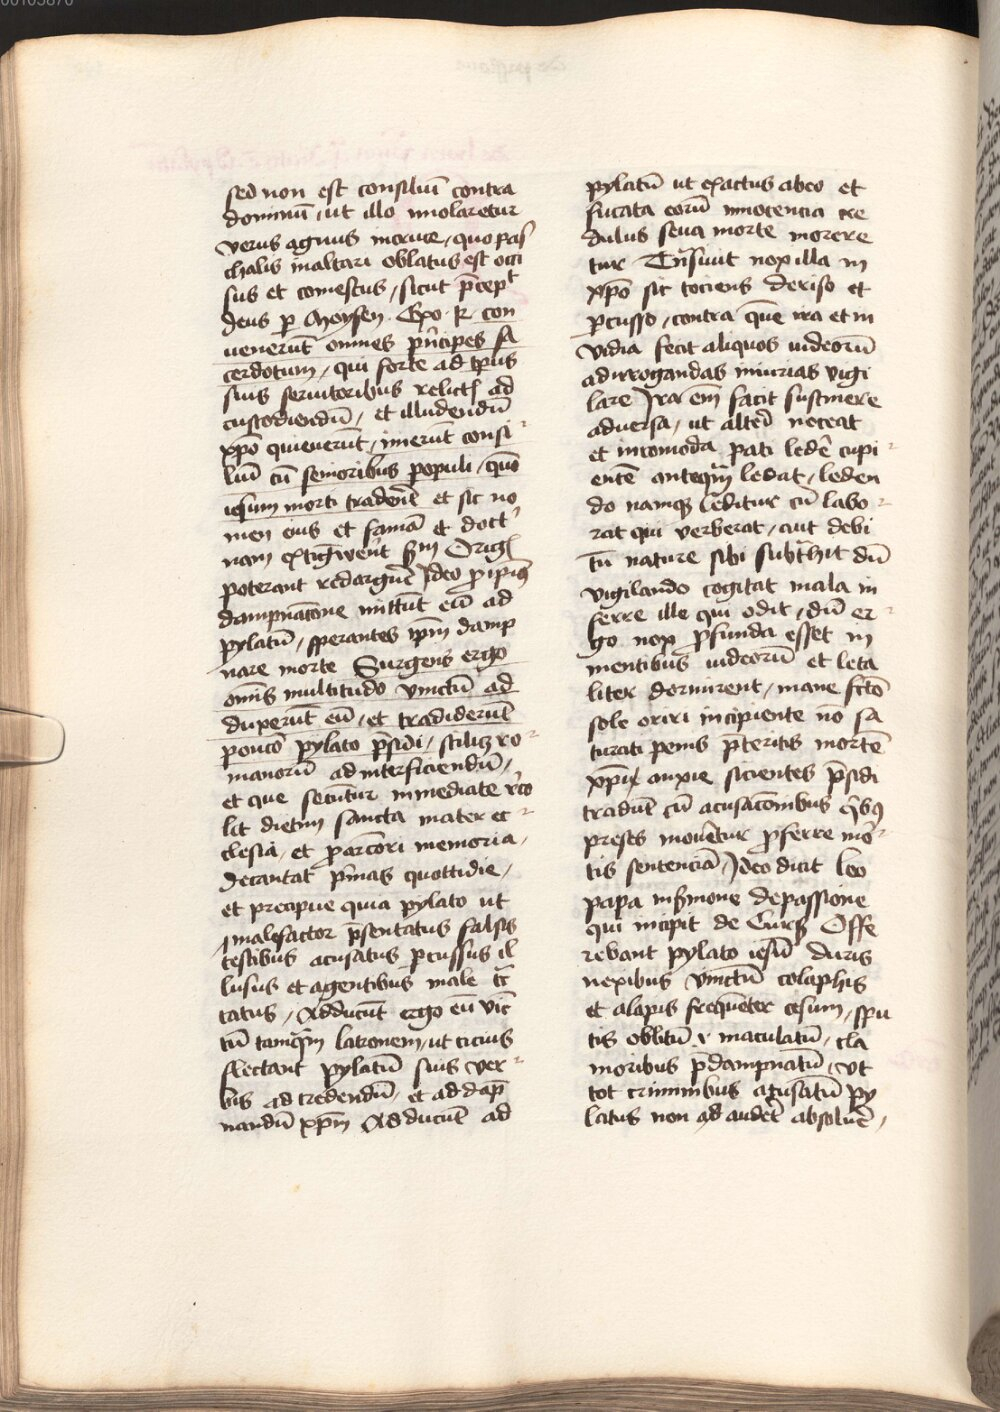 sed non est consiliū contra
dominū, ut illo imolaretur
verus agnus in cruce, quo pas
chalis in altari oblatus est occi
sus et comestus, sicut p̄cept
deus ꝑ Moysen. Expo. R. con
uenerūt omnes p̄ncipes sa
cerdotum, qui forte ad tp̄us
suis seruitoribus relictꝭ ad
custodiendū, et illudendū
xpō quieuerūt, inierūt consi
liū cū senioribus populi, quō
iesum morti traderēt et sic no
men eius et famā et doctͥ
nam extīgwerēt sm̄ Origꝭ
poterant redarguē Ideo ꝑ ipiꝰ
dampnacōne mittūt eū ad
pylatū, sperantes ipm̄ damp
nare morte Surgens ergo
om̄is multitudo vinctū ad
duxerūt eū, et tradiderūt
poncō pylato p̄sidi, scilicꝫ ro
manorū ad interficiendū,
et que secūtur inmediate rͤco
lit dietim sancta mater ec
clesia, et ꝓ arcōri memoria,
decantat p̄mas quottidie,
et precipue quia pylato ut
malefactor p̄sentatus falsis
testibus acusatus ꝑcussus il
lusus et agentibus male tͣc
tatus, Adducūt ergo eū vic̄
tū tamqͣm latronem, ut cicius
flectant pylatū suis ver
bis ad credendū, et ad dāp
nandū xpm̄ Adducūt ad
pylatū ut exactus abeo et
fucata eorū innocencia cre
dulus seua morte morere
tur Trāsiuit nox illa in
xpō sic tociens deriso et
ꝑcusso, contra quē ira et in
vidia fecit aliquos iudeorū
ad irrogandas iniurias vigi
lare Ira em̄ facit sustinere
aduersa, ut alteri noceat
et incomoda pati ledē cupi
entē anteqͣm ledat, leden
do namqꝫ leditur cū labo
rat qui verberat, aut debi
tū nature sibi subtͣhit dū
vigilando cogitat mala in
ferre ille qui odit, dū er
go nox ꝓfunda esset in
mentibus iudeorū et leta
liter dormirent, mane fcō
sole oriri incipiente nō sa
turati penis p̄teritis mortē
xpī anxie sicientes p̄sidi
tradūt cū acusacōnibus qͥbꝰ
preses mouētur ꝓferre mor
tis sentenciā, Ideo dicit leo
papa in sermone de passione
qui incipit de Cuꝰ Offe
rebant pylato iesū duris
nexibus vinctū colaphis
et alapis frequēter cesum, spu
tis oblitū et maculatū, cla
moribus p̄dampnatū, vt
tot criminibus acusatū py
latus non ad audēt absoluē,